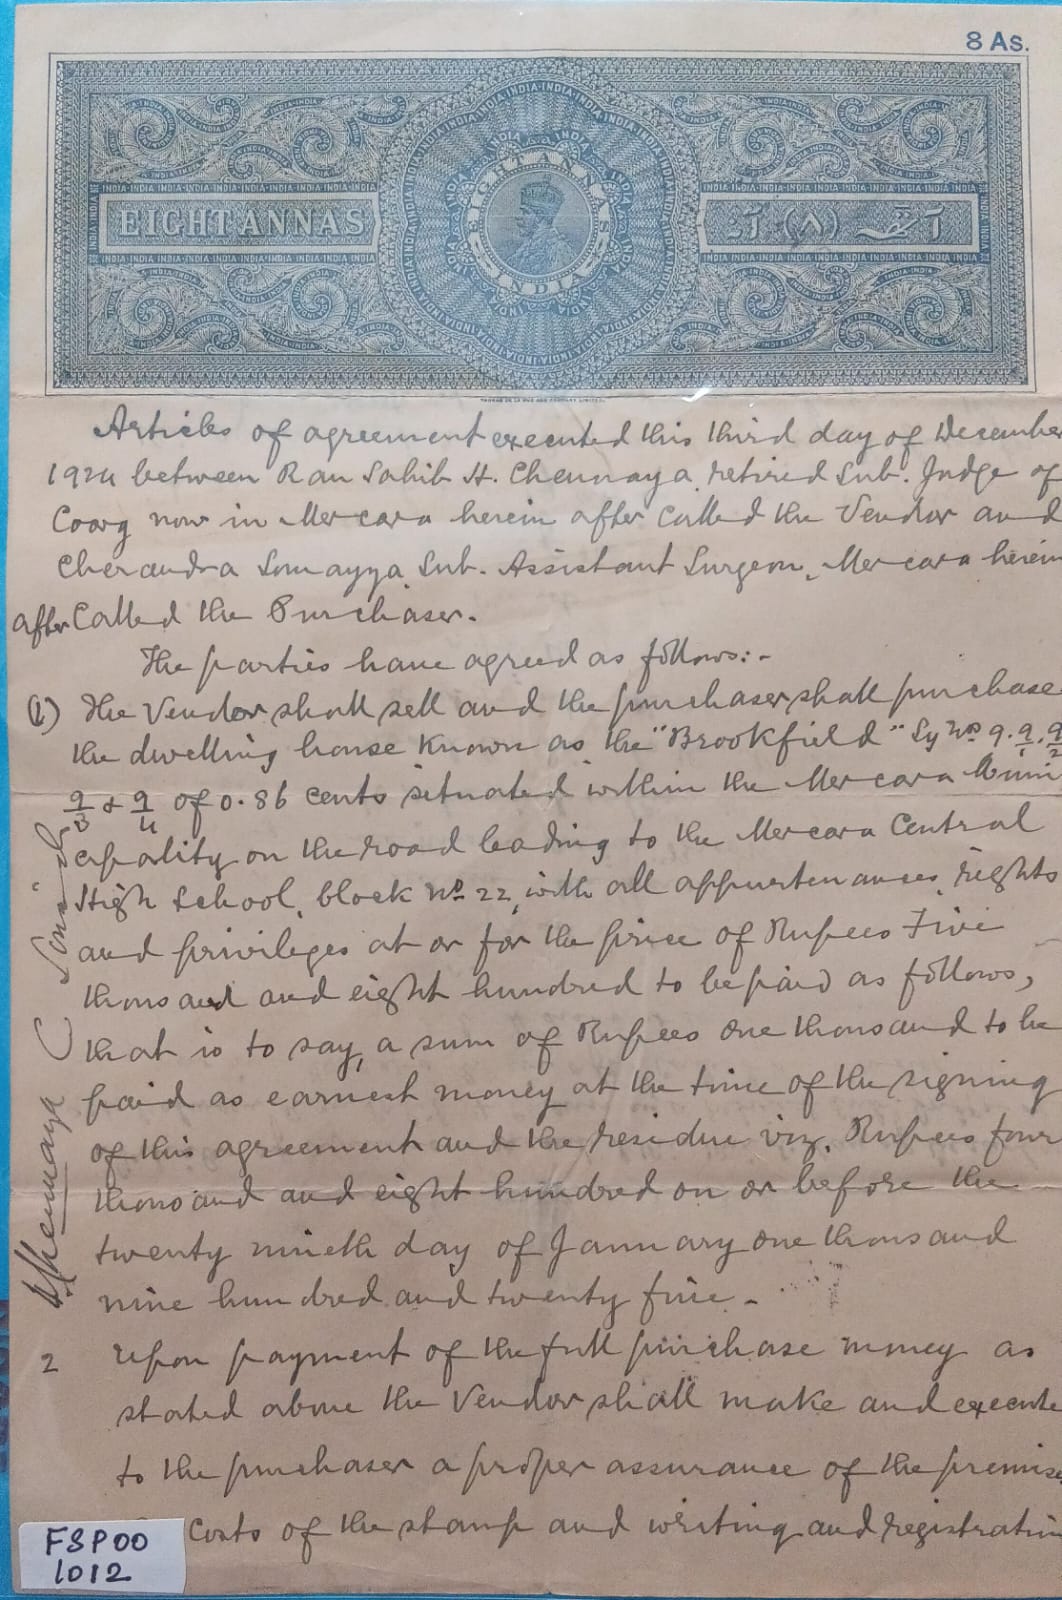 8 As.
EIGHT ANNAS
EIGHT ANNAS
INDIA
آٹھ (٨) آنہ
THOMAS DE LA RUE AND COMPANY LIMITED.
Articles of agreement executed this third day of December
1924 between Rau Sahib H. Chennaya, retired Sub. Judge of
Coorg now in Mercara herein after called the Vendor and
Cherandra Somayya, Sub. Assistant Surgeon, Mercara herein
after Called the Purchaser.
The parties have agreed as follows:-
(1) The Vendor shall sell and the purchaser shall purchase
the dwelling house known as the "Brookfield" Sy Nos 9. 9/1. 9/2
9/3 & 9/4 of 0.86 cents situated within the Mercara Muni
cipality on the road leading to the Mercara Central
High School, block No 22, with all appurtenances, rights
and privileges at or for the price of Rupees Five
thousand and eight hundred to be paid as follows,
that is to say, a sum of Rupees one thousand to be
paid as earnest money at the time of the signing
of this agreement and the residue viz. Rupees four
thousand and eight hundred on or before the
twenty nineth day of January one thousand
nine hundred and twenty five.-
2 Upon payment of the full purchase money as
stated above the Vendor shall make and execute
to the purchaser a proper assurance of the premises
costs of the stamp and writing and registration
H. Chennaya
FSP00
1012